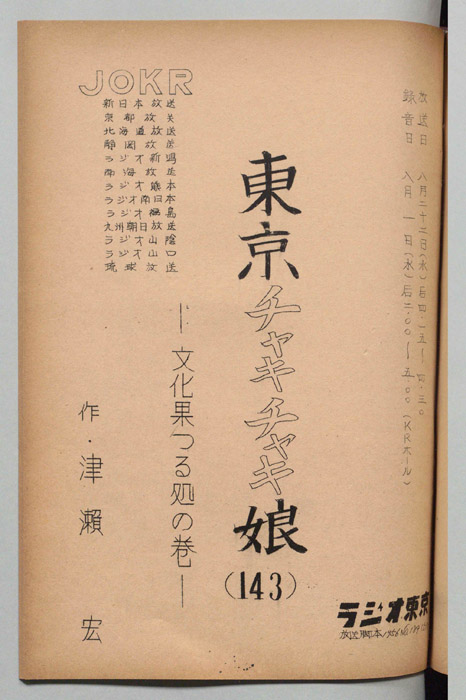 放送日 八月二十二日(水)后四・一五〜四・三〇
録音日 八月一日(水)后二・〇〇〜五・〇〇(KRホール)
東京チャキチャキ娘
(143)
―文化果つる処の巻―
作・津瀨 宏
JOKR
新日本放送
北海道放送
静岡放送
ラジオ新潟
南海放送
ラジオ熊本
ラジオ南日本
九州朝日放送
ラジオ山陰
ラジオ山口
琉球放送
ラジオ東京
放送脚本